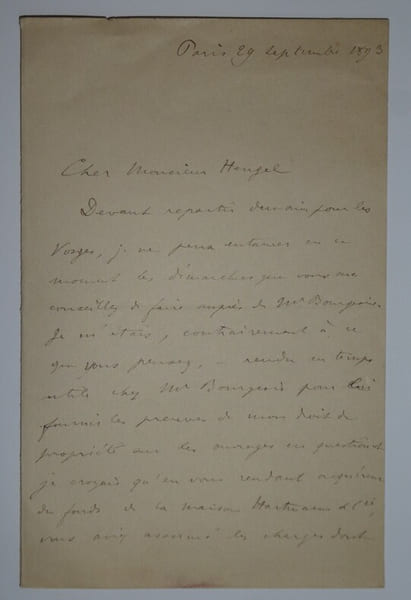 Paris 29 Septembre 1893
Cher Monsieur Hengel
Devant repartir demain pour les
Vosges, je ne peux entamer en ce
moment les démarches que vous me
conseillez de faire auprès de Mr Bourgeois.
Je m'étais, contrairement à ce
que vous pensez, rendu en temps
utile chez Mr Bourgeois pour lui
fournir les preuves de mon droit de
propriété sur les ouvrages en question et
je croyais qu'en vous rendant acquéreur
du fonds de la maison Hartmann & Cie,
vous aviez assumé les charges dont